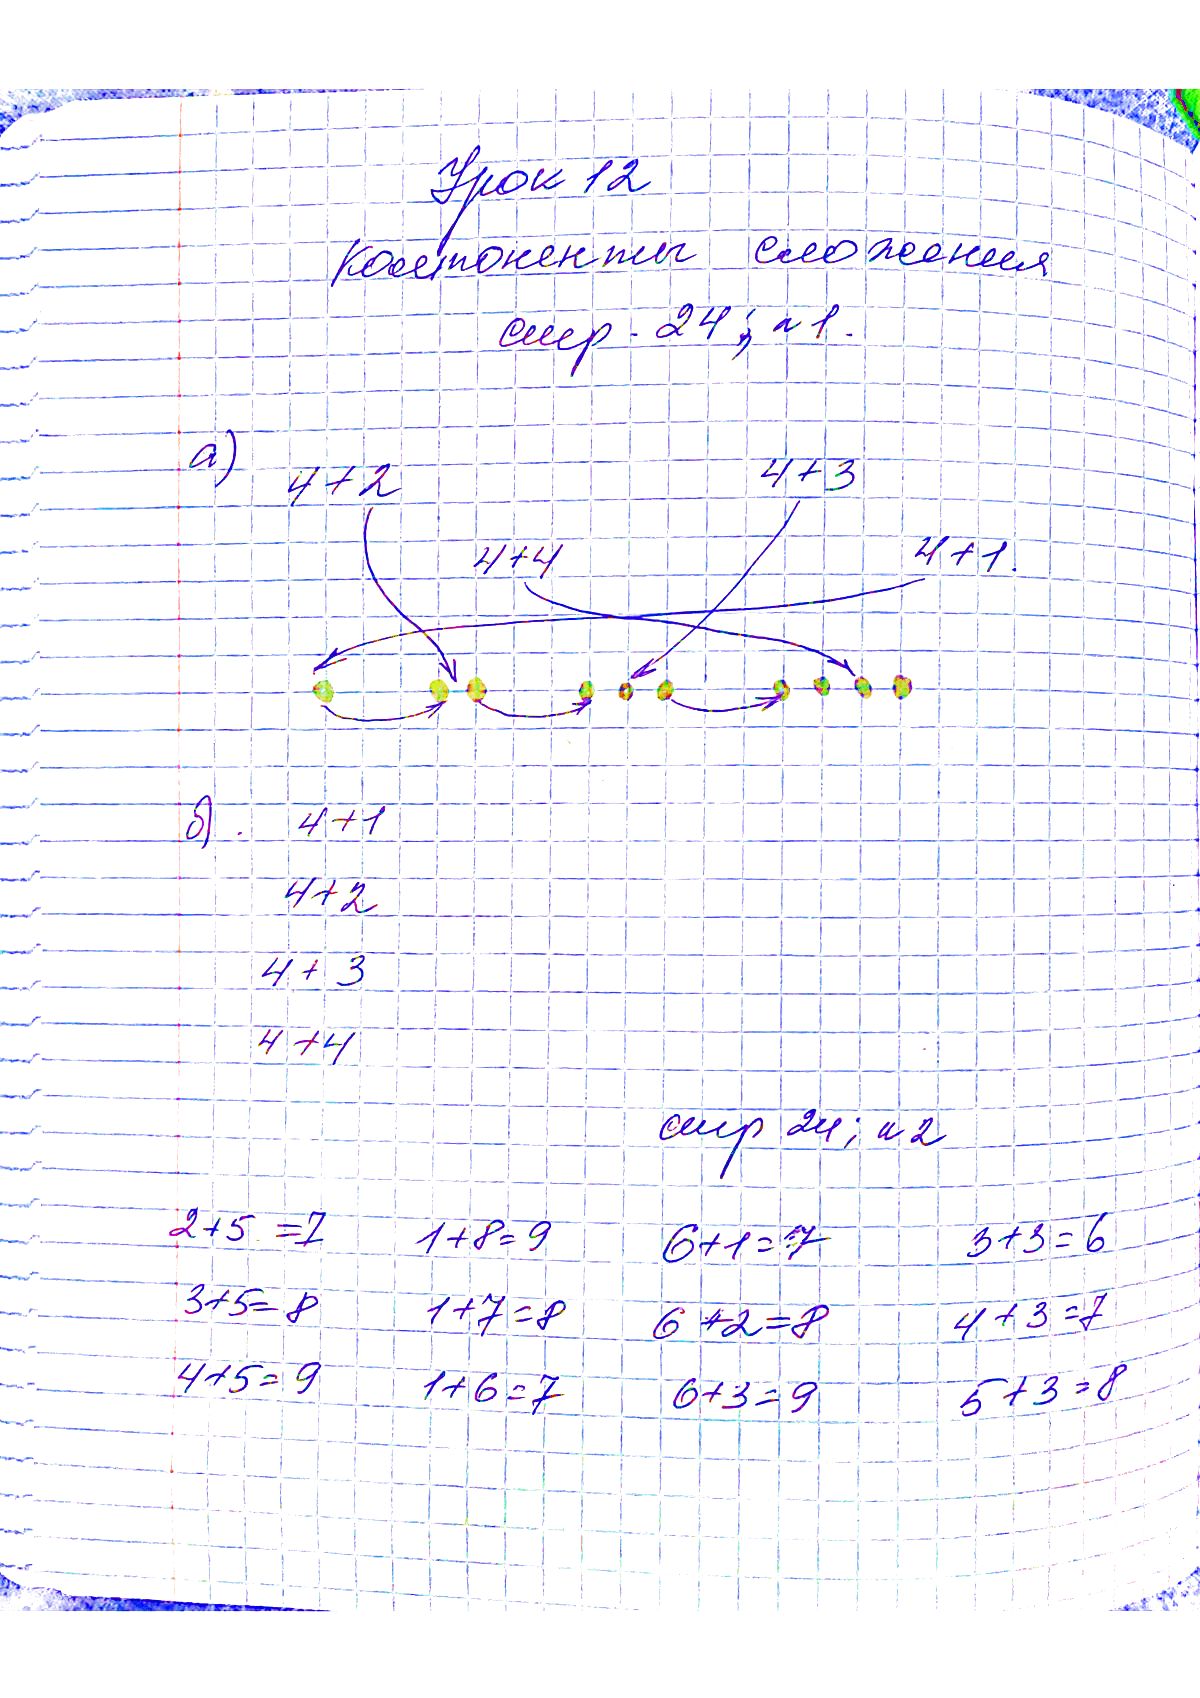 Урок 12
Компоненты сложения
стр. 24; n 1.
а)
4+2 4+3
4+4 4+1.
б). 4+1
4+2
4+3
4+4
стр 24; n 2
2+5=7 1+8=9 6+1=7 3+3=6
3+5=8 1+7=8 6+2=8 4+3=7
4+5=9 1+6=7 6+3=9 5+3=8